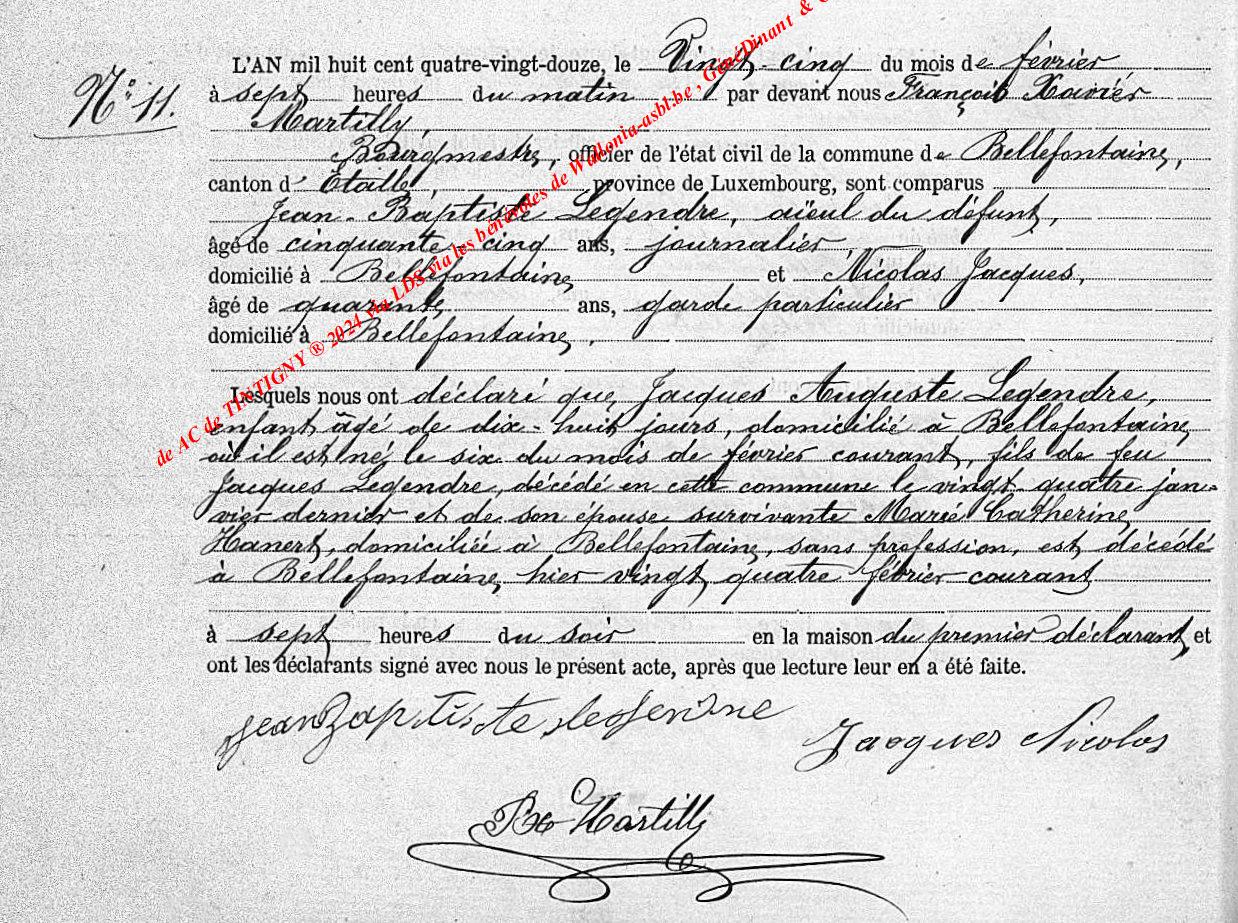 N° 11.
L'AN mil huit cent quatre-vingt-douze, le Vingt-cinq du mois de février
à sept heures du matin par devant nous François Xavier
Martilly,
Bourgmestre, officier de l'état civil de la commune de Bellefontaine,
canton d'Étalle, province de Luxembourg, sont comparus
Jean-Baptiste Legendre, aïeul du défunt,
âgé de cinquante-cinq ans, journalier,
domicilié à Bellefontaine et Nicolas Jacques,
âgé de quarante ans, garde particulier
domicilié à Bellefontaine.
Lesquels nous ont déclaré que Jacques Auguste Legendre,
enfant âgé de dix-huit jours, domicilié à Bellefontaine
où il est né le six du mois de février courant, fils de feu
Jacques Legendre, décédé en cette commune le vingt quatre jan-
vier dernier et de son épouse survivante Marie Catherine
Hanert, domiciliée à Bellefontaine, sans profession, est décédé
à Bellefontaine, hier vingt quatre février courant
à sept heures du soir en la maison du premier déclarant, et
ont les déclarants signé avec nous le présent acte, après que lecture leur en a été faite.
jean Baptiste legendre
Jacques Nicolas
Martilly
de AC de TINTIGNY ® 2024 via LDS via les bénévoles de Wallonia-asbl.be, GénéDinant &